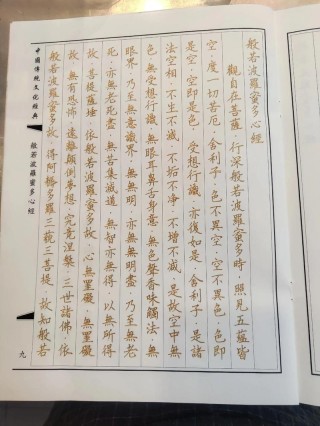 般若波羅蜜多心經
觀自在菩薩·行深般若波羅蜜多時·照見五蘊皆
空·度一切苦厄·舍利子·色不異空·空不異色·色即
是空·空即是色·受想行識·亦復如是·舍利子·是諸
法空相·不生不滅·不垢不淨·不增不減·是故空中無
色·無受想行識·無眼耳鼻舌身意·無色聲香味觸法·無
眼界·乃至無意識界·無無明·亦無無明盡·乃至無老
死·亦無老死盡·無苦集滅道·無智亦無得·以無所得
故·菩提薩埵·依般若波羅蜜多故·心無罣礙·無罣礙
故·無有恐怖·遠離顛倒夢想·究竟涅槃·三世諸佛·依
般若波羅蜜多故·得阿耨多羅三藐三菩提·故知般若
中國傳統文化經典
般若波羅蜜多心經
九